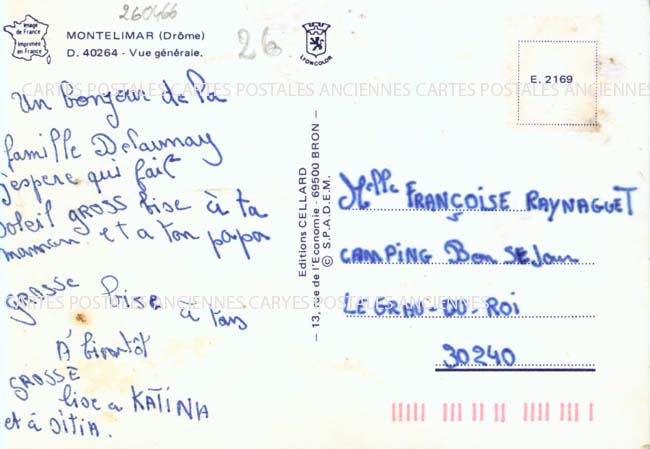 260466
26
Image
de France
Imprimée
en France
MONTELIMAR (Drôme)
D. 40264 - Vue générale.
LYONCOLOR
E. 2169
CARTES POSTALES ANCIENNES CARTES POSTALES ANCIENNES CARTES POSTALES ANCIENNES
Un bonjour de la
famille Delaunay
j'espere qui fait
soleil GROSS bise à ta
maman et a ton papa
GROSSE bise à tous
A' bientôt
GROSSE
bise a KATINA
et à SITIA.
CARTES POSTALES ANCIENNES CARYES POSTALES ANCIENNES CARTES POSTALES ANCIENNES
Editions CELLARD
- 13, rue de l'Economie - 69500 BRON -
© S.P.A.D.E.M.
Melle FRANÇOISE RAYNAGUET
CAMPING Bon SEJour
LE GRAU-DU-ROI
30240